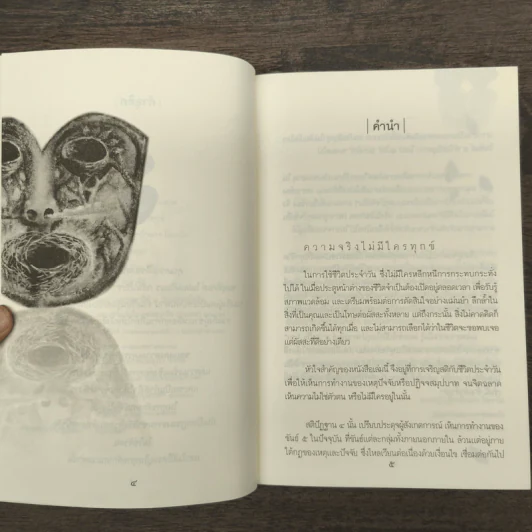 | คำนำ |
ความจริงไม่มีใครทุกข์
ในการใช้ชีวิตประจำวัน ซึ่งไม่มีใครหลีกหนีการกระทบกระทั่ง
ไปได้ ในเมื่อประตูหน้าต่างของชีวิตจำเป็นต้องเปิดอยู่ตลอดเวลา เพื่อรับรู้
สภาพแวดล้อม และเตรียมพร้อมต่อการตัดสินใจอย่างแม่นยำ ลึกล้ำใน
สิ่งที่เป็นคุณและเป็นโทษต่อผัสสะทั้งหลาย แต่ถึงกระนั้น สิ่งไม่คาดคิดก็
สามารถเกิดขึ้นได้ทุกเมื่อ และไม่สามารถเลือกได้ว่าในชีวิตจะขอพบเจอ
แต่ผัสสะที่ดีอย่างเดียว
หัวใจสำคัญของหนังสือเล่มนี้ จึงอยู่ที่การเจริญสติกับชีวิตประจำวัน
เพื่อให้เห็นการทำงานของเหตุปัจจัยหรือปฏิจจสมุปบาท จนจิตฉลาด
เห็นความไม่ใช่ตัวตน หรือไม่มีใครอยู่ในนั้น
สติปัฏฐาน ๔ นั้น เปรียบประตุจผู้สังเกตการณ์ เห็นการทำงานของ
ขันธ์ ๕ ในปัจจุบัน ที่ขันธ์แต่ละกลุ่มทั้งภายนอกภายใน ล้วนแต่อยู่ภาย
ใต้กฎของเหตุและปัจจัย ซึ่งไหลเวียนต่อเนื่องด้วยเงื่อนไข เชื่อมต่อกันไป
๔
๕